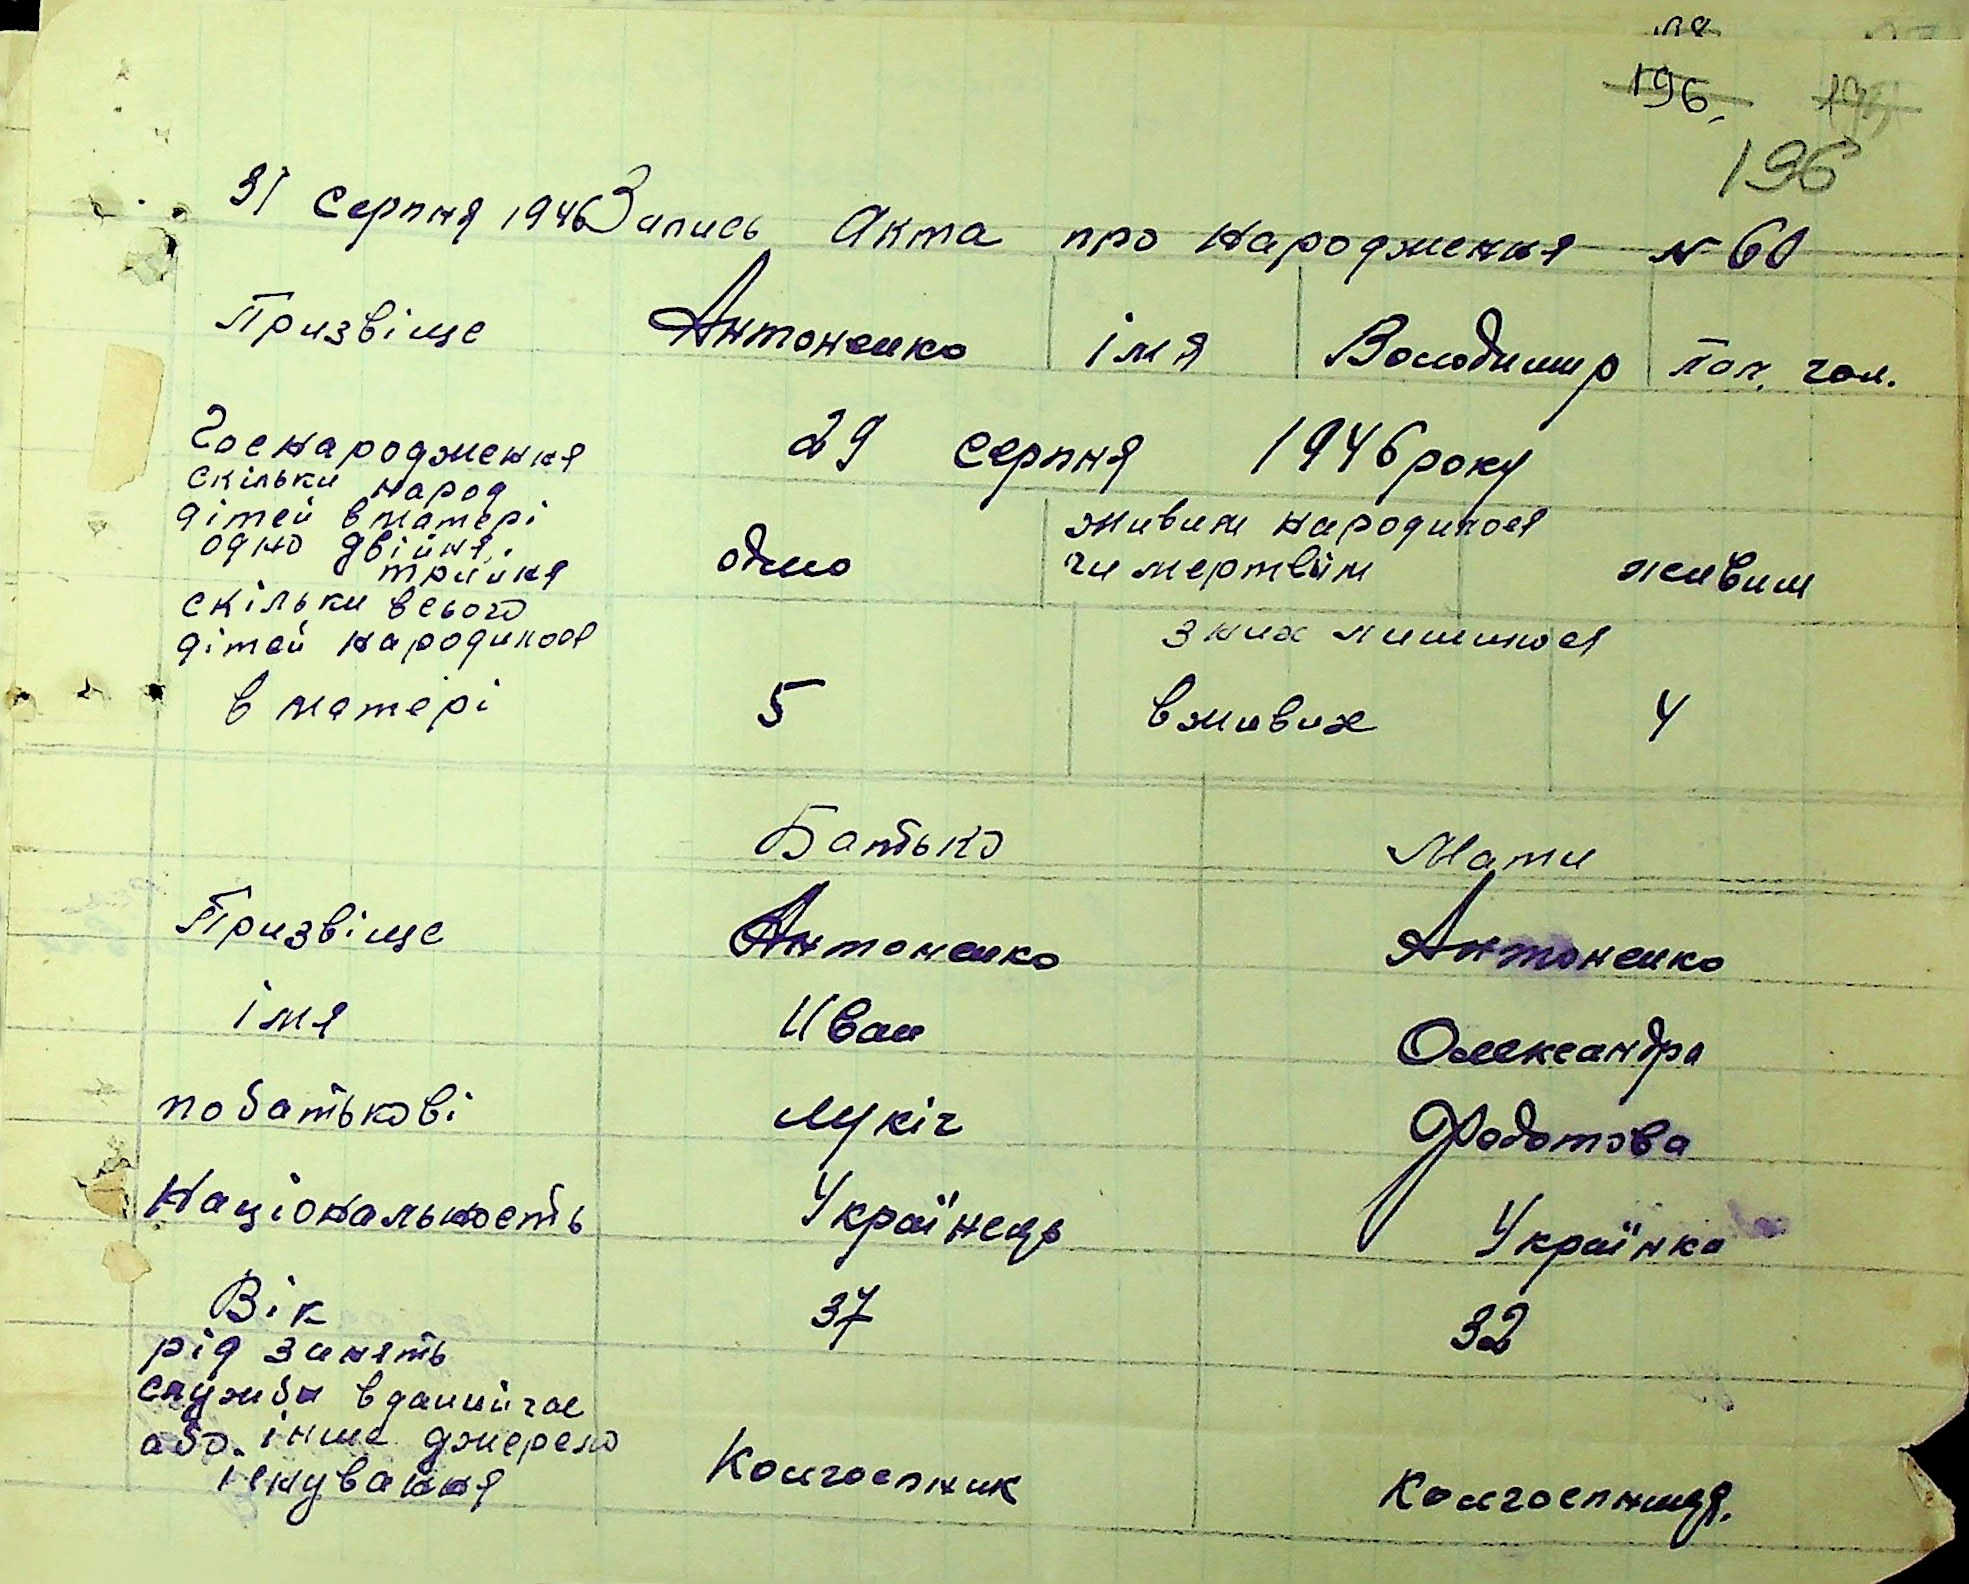 196.
196
31 Серпня 1946 Запись Акта про народження № 60
Призвіще Антоненко імя Володимир пол. чол.
Час народження 29 серпня 1946 року
скільки народ
дітей в матері живим народилося
одно двійня, одно чи мертвим живим
трийня
скільки всього
дітей народилося з них лишилося
в матері 5 в живих 4
Батько Мати
Призвіще Антоненко Антоненко
імя Иван Олександра
по батькові Лукіч Федотова
Національность Українець Українка
Вік 37 32
рід занять
служби в даний час
або. інше джерело
існування Колгоспник Колгоспниця.